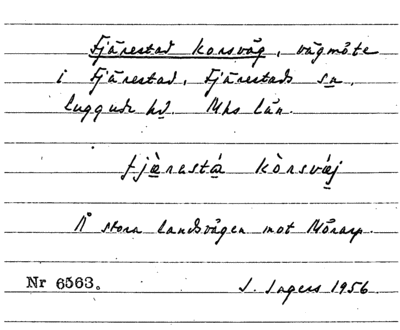 Fjärestad korsväg, vägmöte
i Fjärestad, Fjärestads sn,
Luggude hd. Mhs län.
fjæ̀rastá kòrsvǽj
Å stora landsvägen mot Mörarp.
Nr 6563. I. Ingers 1956